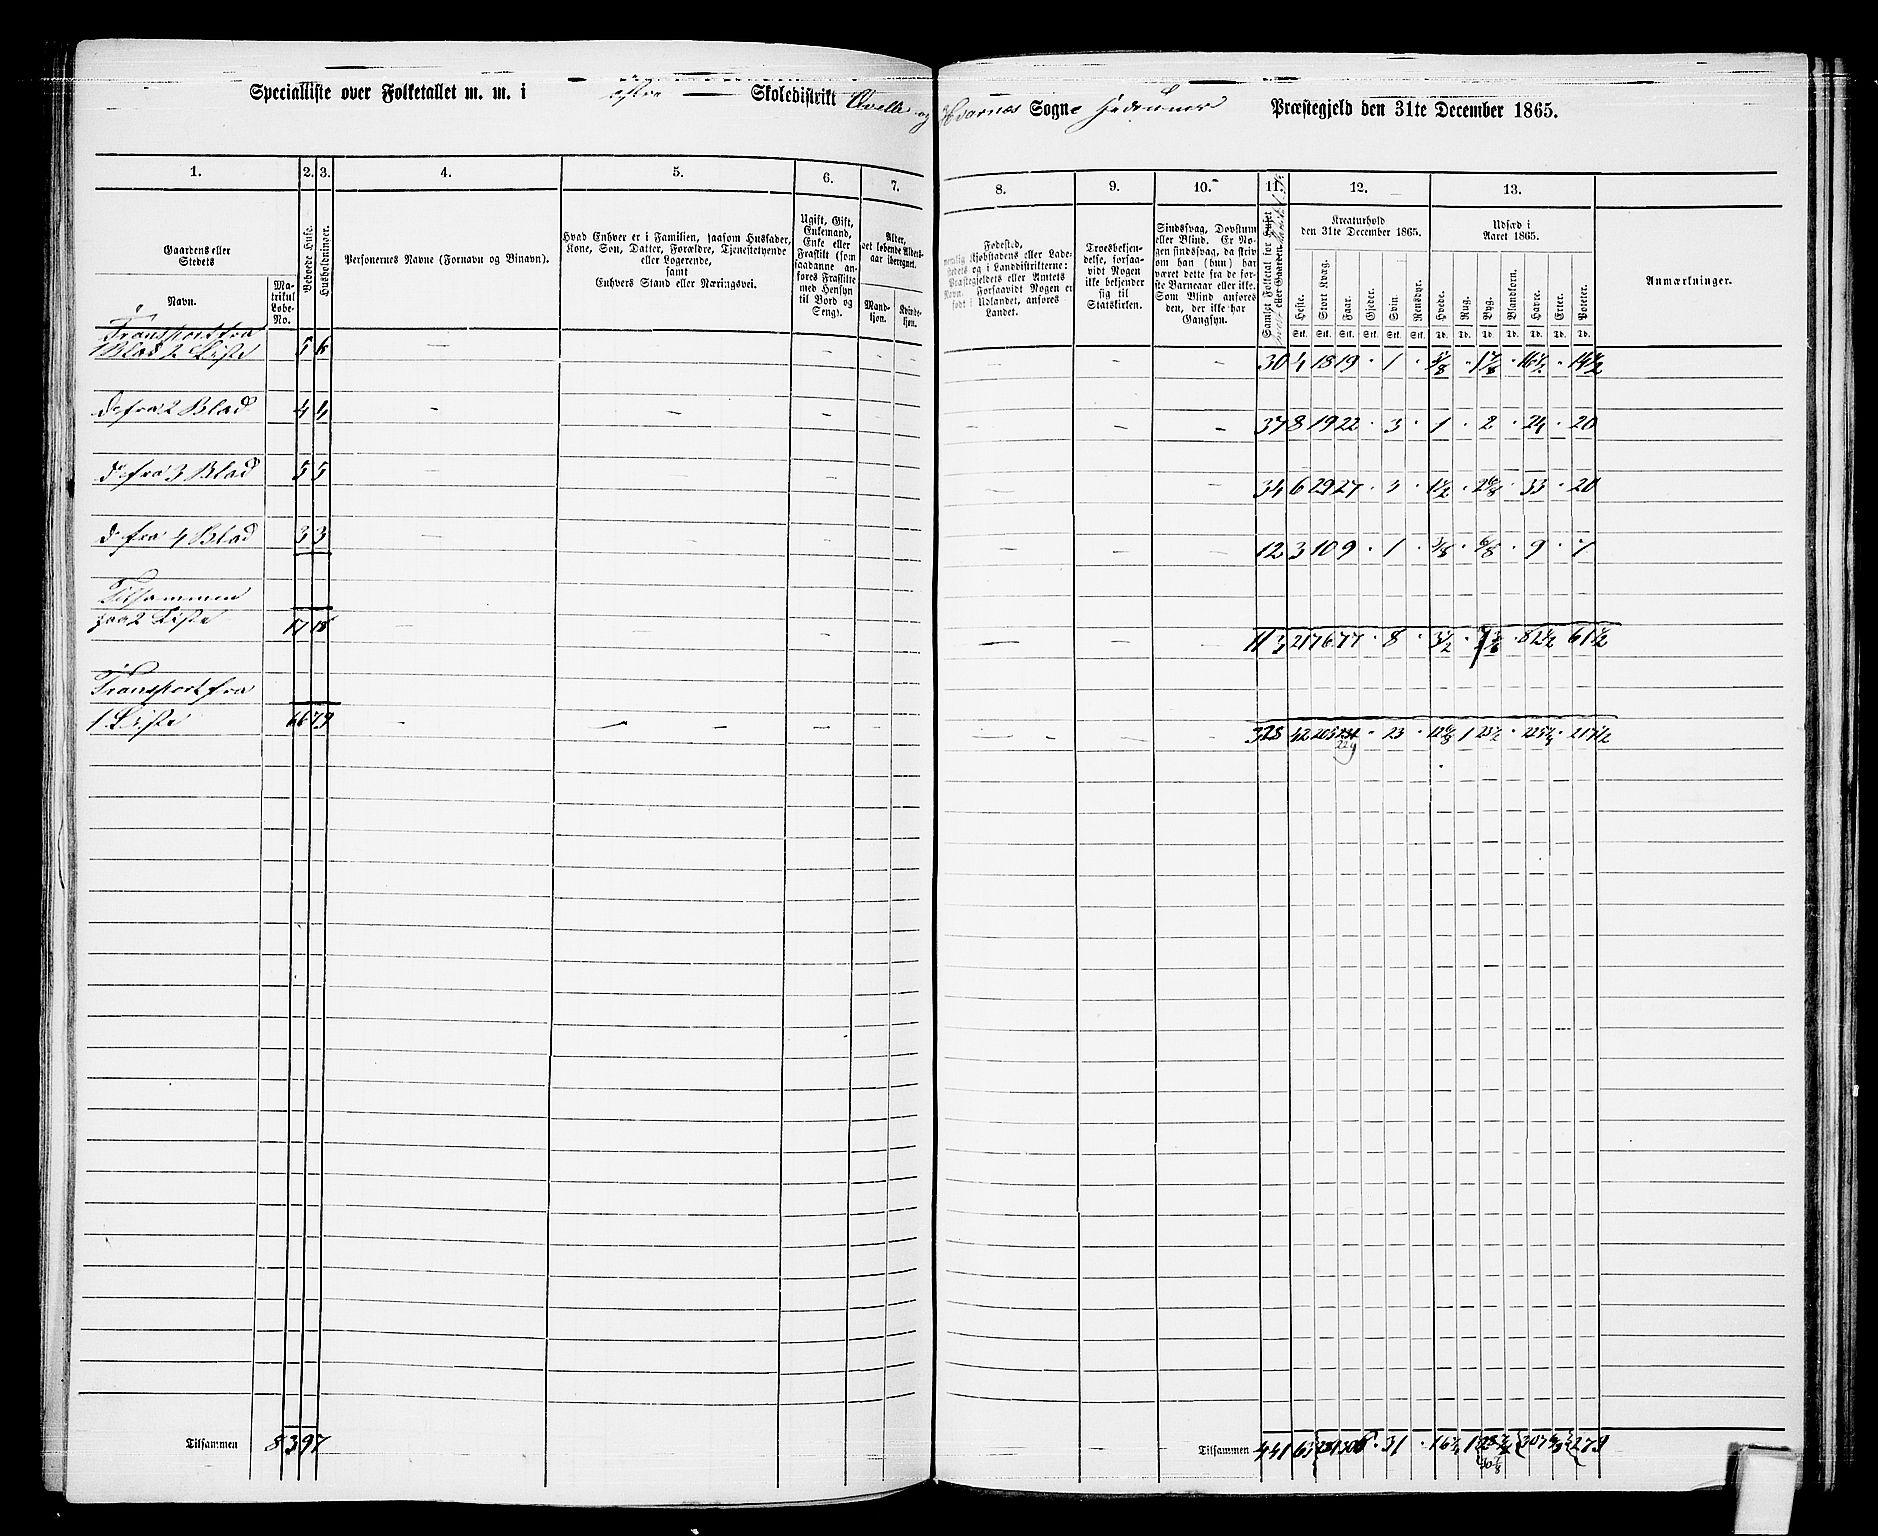 Specialliste over Folketallet m. m. i østre Skoledistrikt Kvelle og Hvarnes Sogne Hedrums Præstegjeld den 31te December 1865.
1. 2. 3. 4. 5. 6. 7. 8. 9. 10. 11. 12. 13.
Gaardens eller Stedets
Navn.
Matrikul Løbe-No.
Beboede Huse.
Husholdninger.
Personernes Navne (Fornavn og Binavn).
Hvad Enhver er i Familien, saasom Husfader,
Kone, Son, Datter, Forældre, Tjenestetyende
eller Logerende,
samt
Enhvers Stand eller Næringsvei.
Ugift, Gift,
Enkemand,
Enke eller
Fraskilt (som
saadanne anføres Fraskilte
med Hensyn
til Bord og
Seng).
Alder,
det løbende Aldersaar iberegnet.
Mandkjøn.
Kvindekjøn.
Fødested,
nemlig Kjøbstadens eller Ladestedets og i Landdistrikterne:
Præstegjeldets eller Amtets
Navn. Forsaavidt Nogen er
født i Udlandet, anføres
Landet.
Troesbekjendelse, forsaavidt Nogen
ikke bekjender
sig til
Statskirken.
Sindssvag, Døvstum
eller Blind. Er Nogen sindssvag, da skrives om han (hun) har
været dette fra de første Barneaar eller ikke.
Som Blind anføres
den, der ikke har
Gangsyn.
Samlet Folketal for Huset
eller Gaarden
Kreaturhold
den 31te December 1865.
Heste. Stort Kvæg. Faar. Gjeder. Svin. Rensdyr.
Stk. Stk. Stk. Stk. Stk. Stk.
Udsæd i
Aaret 1865.
Hvede. Rug. Byg. Blandkorn. Havre. Erter. Poteter.
Td. Td. Td. Td. Td. Td. Td.
Anmærkninger.
Transport fra
1 Blad 2 Liste 5 6 30 4 18 19 · 1 · 5/8 · 1 7/8 · 16 1/2 · 14 1/2
do fra 2 Blad 4 4 37 8 19 22 · 3 · 1 · 2 · 24 · 20
do fra 3 Blad 5 5 34 6 29 27 · 3 · 1 1/2 · 2 6/8 · 33 · 20
do fra 4 Blad 3 3 12 3 10 9 · 1 · 3/8 · 6/8 · 9 · 7
Tilsammen
paa 2 Liste 17 18 113 21 76 77 · 8 · 3 1/2 · 82 1/2 · 61 1/2
Transport fra
1 Liste 66 79 328 42 205 · 23 · 1
Tilsammen 83 97 Tilsammen 441 63 281 306 · 31 · 1 279